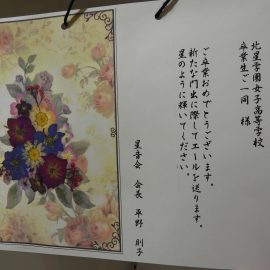 北星学園女子高等学校
卒業生ご一同 様
ご卒業おめでとうございます。
新たな門出に際してエールを送ります。
星のように輝いてください。
星音会 会長 平野 則子